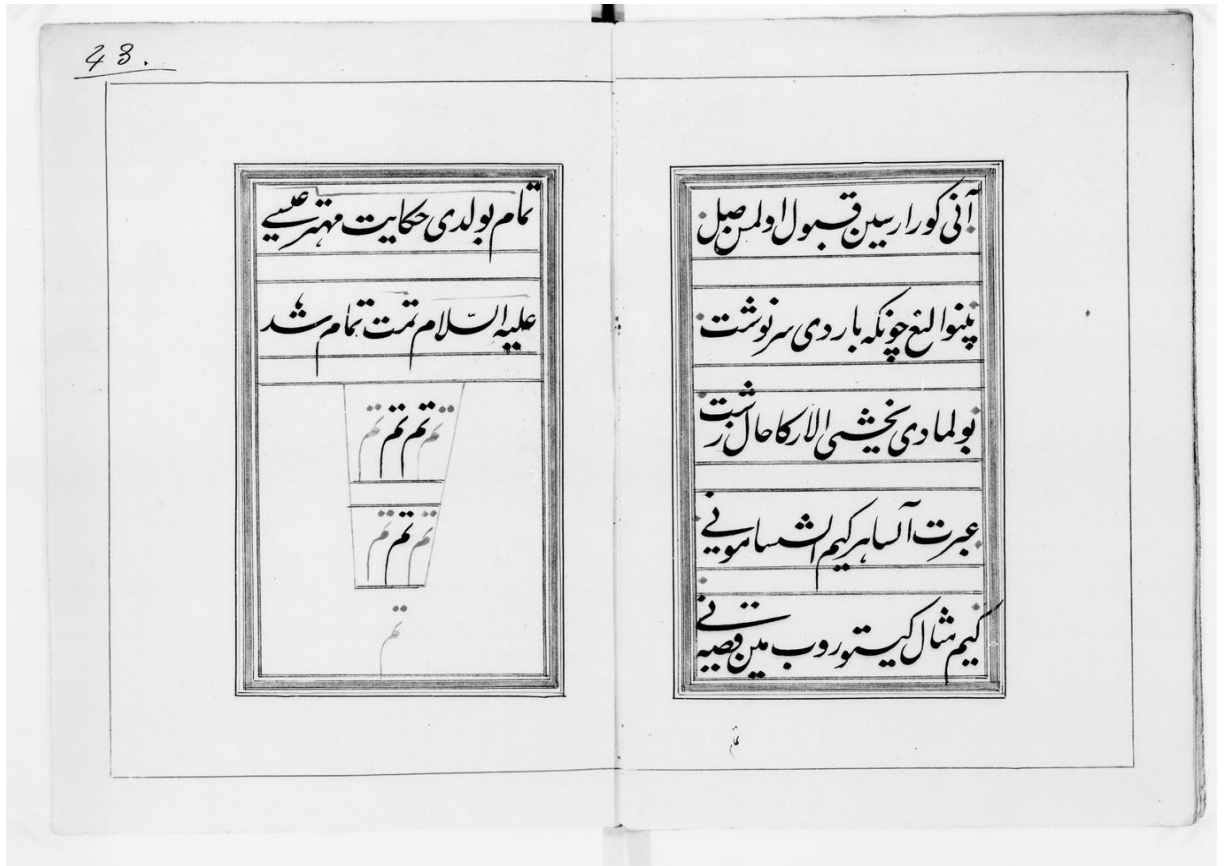 آنی کورارسین قبول اولمن صیل
نینوا لنغ چونکه باردی سرنوشت
بولمادی یخشی الارکا حال زشت
عبرت آلسا هر کیم اشتسا مونی
کیم مثال کیستوروب مین قصیه نی
تمام
43.
تمام بولدی حکایت مهتر عیسی
علیه السلام تمت تمام شد
تم تم تم تم
تم تم تم
تم